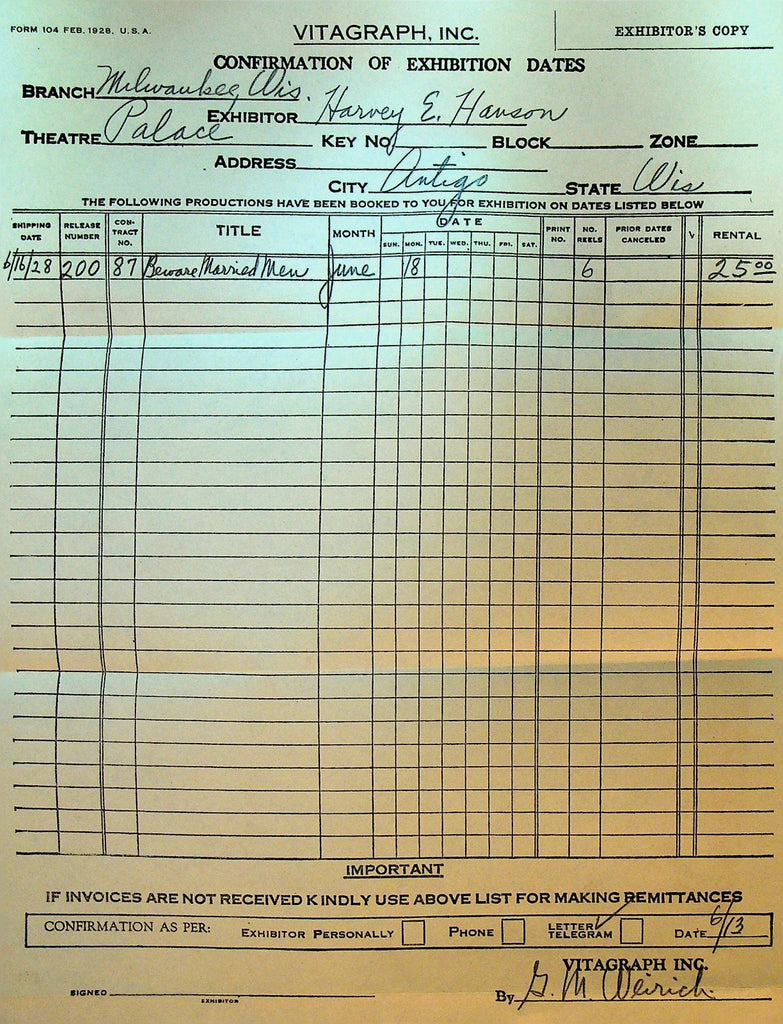 FORM 104 FEB. 1928. U. S. A.
VITAGRAPH, INC.
EXHIBITOR'S COPY
CONFIRMATION OF EXHIBITION DATES
BRANCH Milwaukee, Wis.
EXHIBITOR Harvey E. Hanson
THEATRE Palace KEY NO. BLOCK ZONE
ADDRESS
CITY Antigo STATE Wis
THE FOLLOWING PRODUCTIONS HAVE BEEN BOOKED TO YOU FOR EXHIBITION ON DATES LISTED BELOW
SHIPPING DATE RELEASE NUMBER CON-TRACT NO. TITLE MONTH DATE SUN. MON. TUE. WED. THU. FRI. SAT. PRINT NO. NO. REELS PRIOR DATES CANCELED V RENTAL
6/16/28 200 87 Beware Married Men June 18 6 25.00
IMPORTANT
IF INVOICES ARE NOT RECEIVED KINDLY USE ABOVE LIST FOR MAKING REMITTANCES
CONFIRMATION AS PER: EXHIBITOR PERSONALLY PHONE LETTER TELEGRAM DATE 6/13
VITAGRAPH INC.
SIGNED By G. M. Weirich
EXHIBITOR